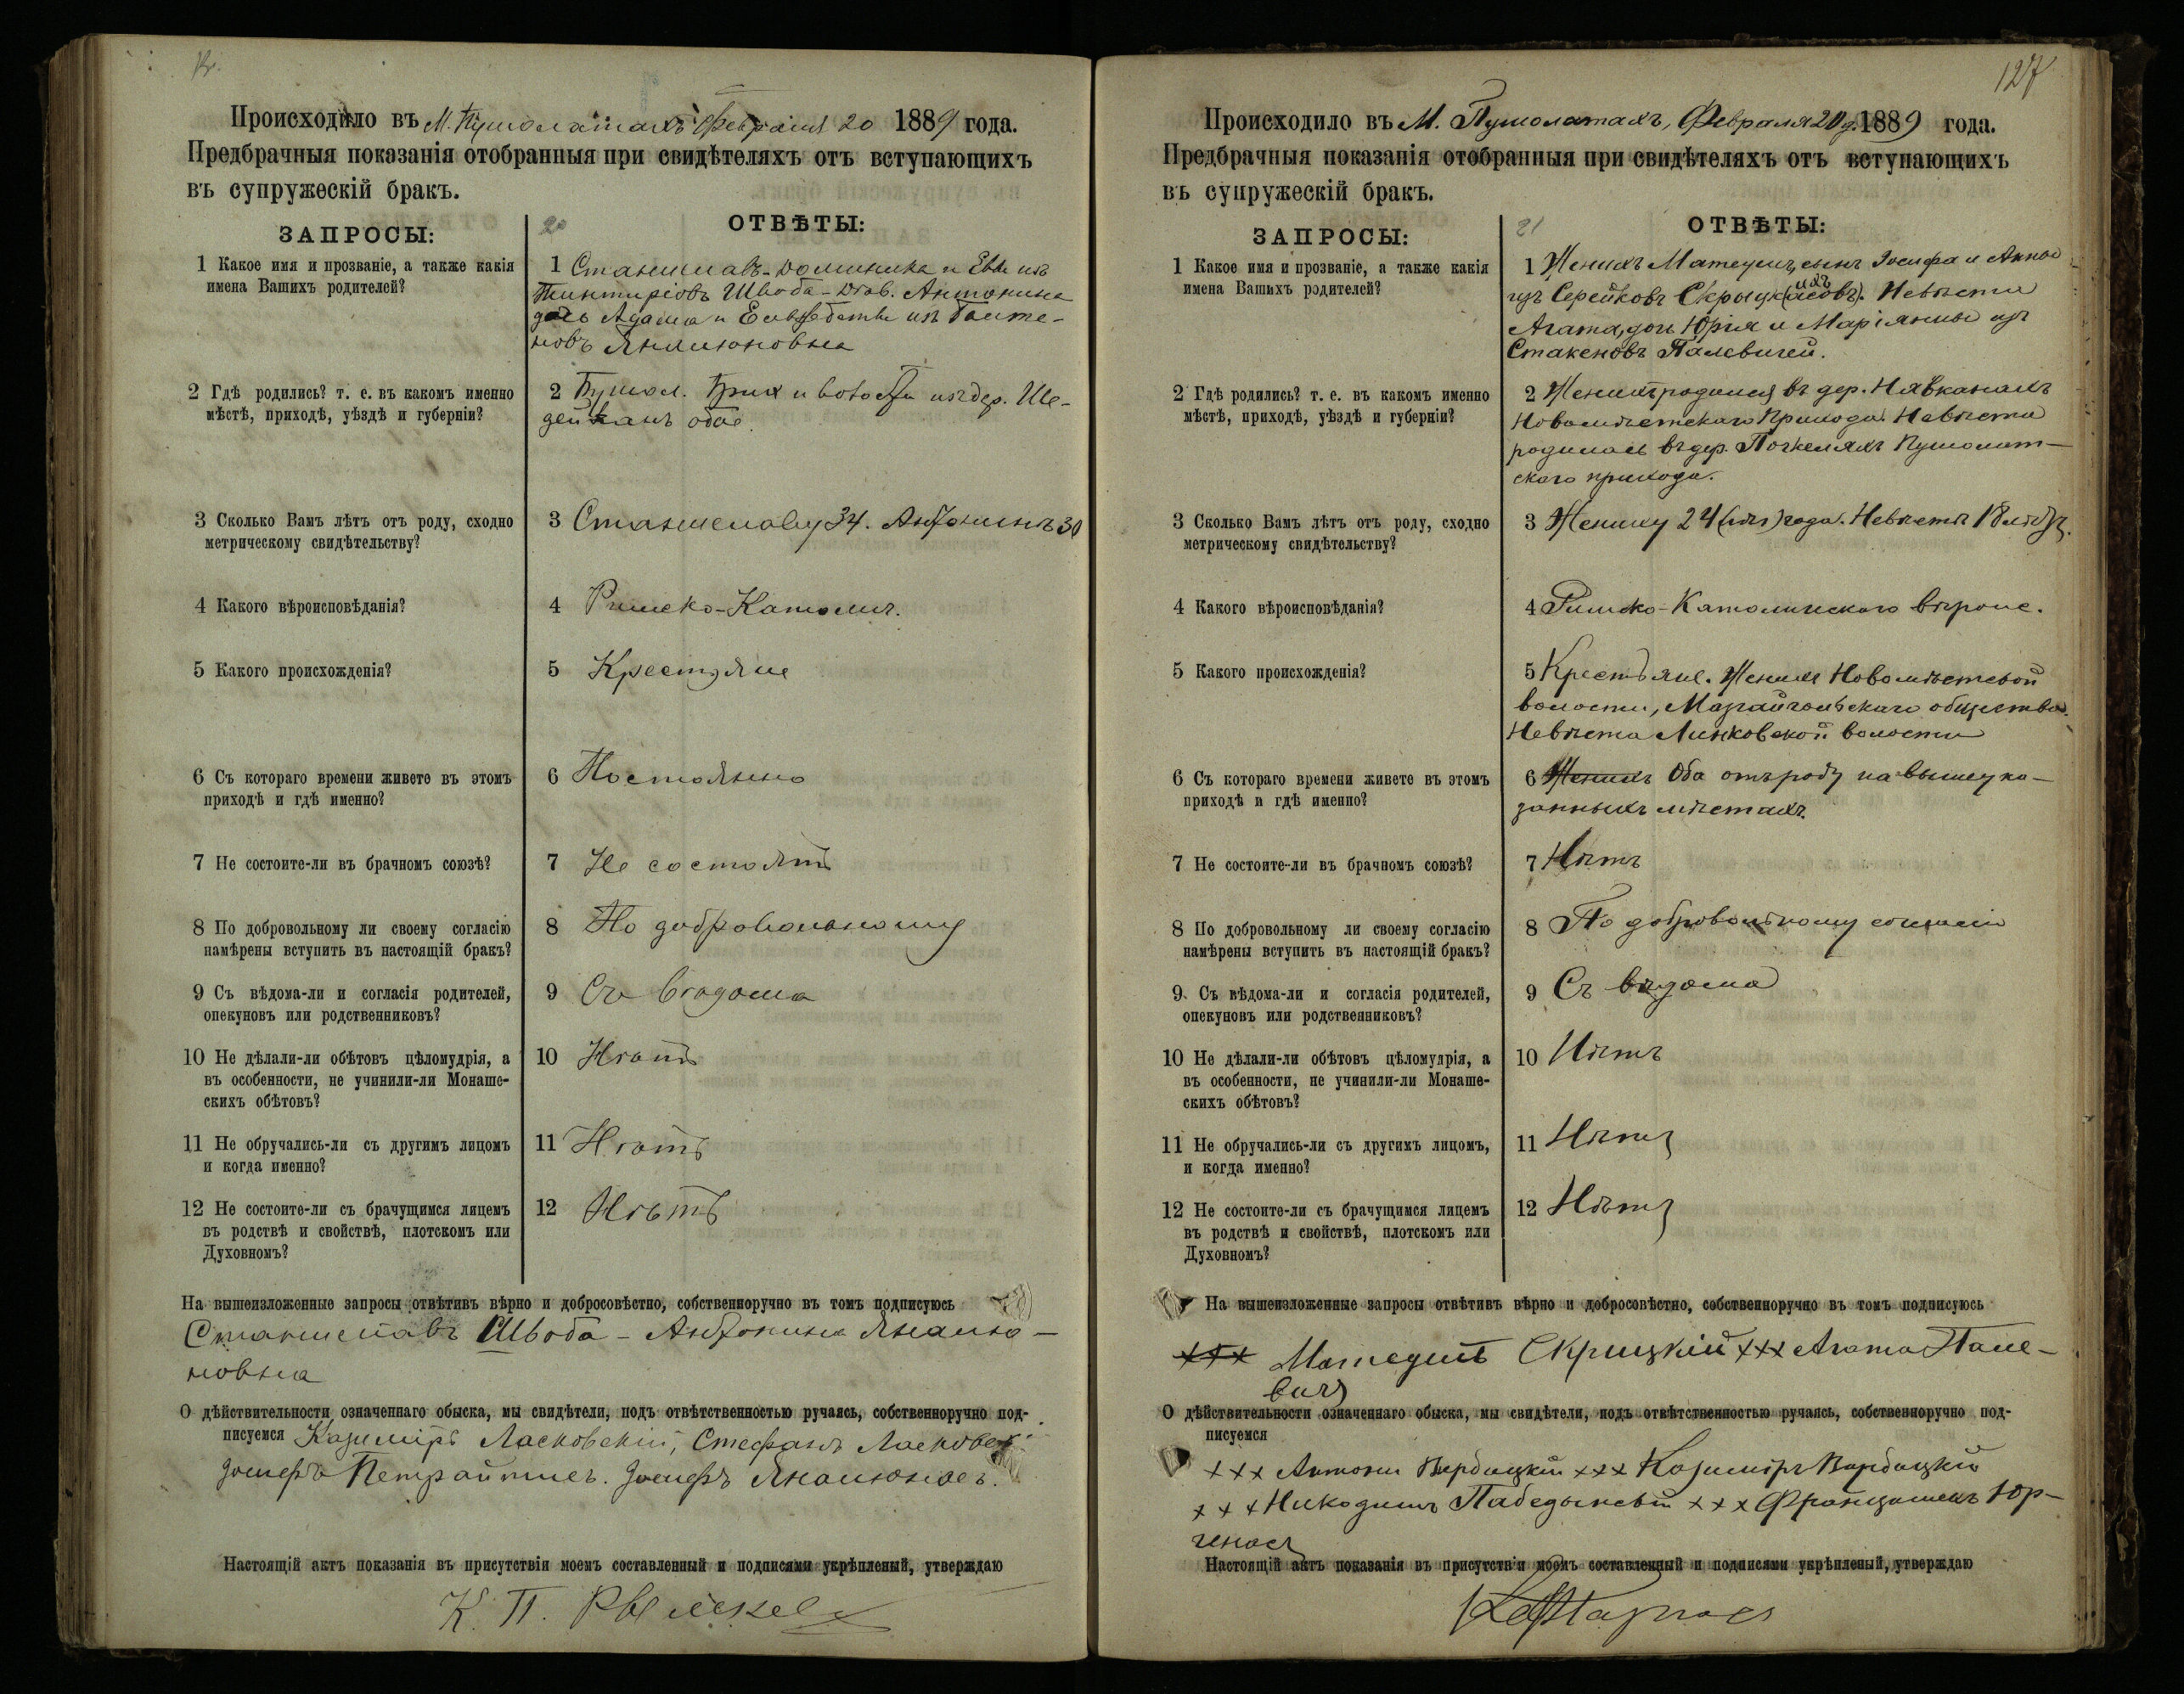 Происходило въ М. Пумолатахъ Февраля 20 1889 года.
Предбрачныя показанія отобранныя при свидѣтеляхъ отъ вступающихъ
въ супружескій бракъ.
ЗАПРОСЫ:
20
ОТВѢТЫ:
1 Какое имя и прозваніе, а также какія
имена Вашихъ родителей?
1 Станиславъ - Доминика и Евы изъ
Швоба - Антонина
дочь Адама и
2 Гдѣ родились? т. е. въ какомъ именно
мѣстѣ, приходѣ, уѣздѣ и губерніи?
2 Пумол. Прих и волости изъ дер. Ше-
дейкань обое.
3 Сколько Вамъ лѣтъ отъ роду, сходно
метрическому свидѣтельству?
3 Станиславу 34. Антонинѣ 30
4 Какого вѣроисповѣданія?
4 Римско-Католич.
5 Какого происхожденія?
5 Крестьяне
6 Съ котораго времени живете въ этомъ
приходѣ и гдѣ именно?
6 Постоянно
7 Не состоите-ли въ брачномъ союзѣ?
7 Не состоятъ
8 По добровольному ли своему согласію
намѣрены вступить въ настоящій бракъ?
8 По добровольному
9 Съ вѣдома-ли и согласія родителей,
опекуновъ или родственниковъ?
9 Съ вѣдома
10 Не дѣлали-ли обѣтовъ цѣломудрія, а
въ особенности, не учинили-ли Монаше-
скихъ обѣтовъ?
10 Нѣтъ
11 Не обручались-ли съ другимъ лицомъ
и когда именно?
11 Нѣтъ
12 Не состоите-ли съ брачущимся лицемъ
въ родствѣ и свойствѣ, плотскомъ или
Духовномъ?
12 Нѣтъ
На вышеизложенные запросы отвѣтивъ вѣрно и добросовѣстно, собственноручно въ томъ подписуюсь
Станиславъ Швоба - Антонина Яналю-
новна
О дѣйствительности означеннаго обыска, мы свидѣтели, подъ отвѣтственностью ручаясь, собственноручно под-
писуемся Казимиръ Ласковскій, Стефанъ Ласковск
Іосифъ Петрайтисъ. Іосифъ Яналюнасъ.
Настоящій актъ показанія въ присутствіи моемъ составленный и подписями укрѣпленый, утверждаю
К. П.
127
Происходило въ М. Пумолатахъ, Февраля 20 д. 1889 года.
Предбрачныя показанія отобранныя при свидѣтеляхъ отъ вступающихъ
въ супружескій бракъ.
ЗАПРОСЫ:
21
ОТВѢТЫ:
1 Какое имя и прозваніе, а также какія
имена Вашихъ родителей?
1 Женихъ Матеушъ, сынъ Іосифа и Анны
изъ Серейковъ Невѣста
Агата, дочь Юрія и Маріянны изъ
Стакеновъ Палевичей.
2 Гдѣ родились? т. е. въ какомъ именно
мѣстѣ, приходѣ, уѣздѣ и губерніи?
2 Женихъ родился въ дер. Нявканахъ
Новомѣстскаго Прихода. Невѣста
родилась въ дер. Почкеляхъ Пумолат-
скаго прихода.
3 Сколько Вамъ лѣтъ отъ роду, сходно
метрическому свидѣтельству?
3 Жениху 24 года. Невѣстѣ 18 лѣтъ.
4 Какого вѣроисповѣданія?
4 Римско-Католическаго вѣроис.
5 Какого происхожденія?
5 Крестьяне. Женихъ Новомѣстской
волости, общества.
Невѣста Линковской волости
6 Съ котораго времени живете въ этомъ
приходѣ и гдѣ именно?
6 Женихъ Оба отъ роду на вышеука-
занныхъ мѣстахъ.
7 Не состоите-ли въ брачномъ союзѣ?
7 Нѣтъ
8 По добровольному ли своему согласію
намѣрены вступить въ настоящій бракъ?
8 По добровольному согласію
9 Съ вѣдома-ли и согласія родителей,
опекуновъ или родственниковъ?
9 Съ вѣдома
10 Не дѣлали-ли обѣтовъ цѣломудрія, а
въ особенности, не учинили-ли Монаше-
скихъ обѣтовъ?
10 Нѣтъ
11 Не обручались-ли съ другихъ лицомъ,
и когда именно?
11 Нѣтъ
12 Не состоите-ли съ брачущимся лицемъ
въ родствѣ и свойствѣ, плотскомъ или
Духовномъ?
12 Нѣтъ
На вышеизложенные запросы отвѣтивъ вѣрно и добросовѣстно, собственноручно въ томъ подписуюсь
+++ Матеушъ Скрицкій +++ Агата Пале-
вичъ
О дѣйствительности означеннаго обыска, мы свидѣтели, подъ отвѣтственностью ручаясь, собственноручно под-
писуемся
+++ Антони Вербицкій +++ Казиміръ Вербицкій
+++ Никодимъ +++ Францишекъ Юр-
генасъ
Настоящій актъ показанія въ присутствіи моемъ составленный и подписями укрѣпленый, утверждаю